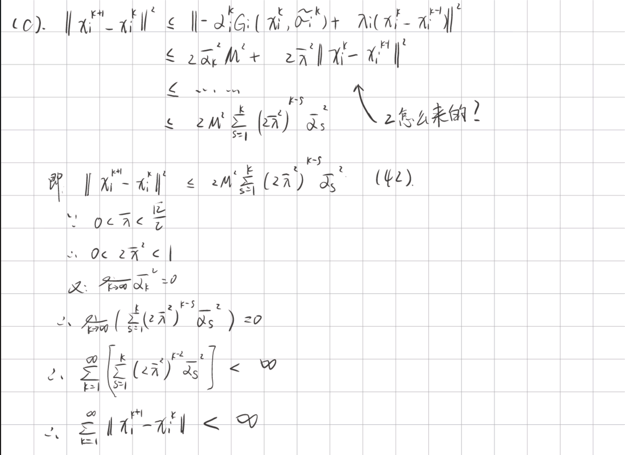 (c). ‖x_i^{k+1} - x_i^k‖² ≤ ‖-α_i^k G_i(x_i^k, σ̃_i^k) + λ_i(x_i^k - x_i^{k-1})‖²
≤ 2ᾱ_k² M² + 2λ̄²‖x_i^k - x_i^{k-1}‖²
≤ ... ...
≤ 2M² ∑_{s=1}^k (2λ̄²)^{k-s} ᾱ_s² 2怎么来的?
即 ‖x_i^{k+1} - x_i^k‖² ≤ 2M² ∑_{s=1}^k (2λ̄²)^{k-s} ᾱ_s² (42).
∵ 0 < λ̄ < √2/2
∴ 0 < 2λ̄² < 1
又: lim_{k→∞} ᾱ_k² = 0
∴ lim_{k→∞} (∑_{s=1}^k (2λ̄²)^{k-s} ᾱ_s²) = 0
∴ ∑_{k=1}^∞ [∑_{s=1}^k (2λ̄²)^{k-s} ᾱ_s²] < ∞
∴ ∑_{k=1}^∞ ‖x_i^{k+1} - x_i^k‖ < ∞